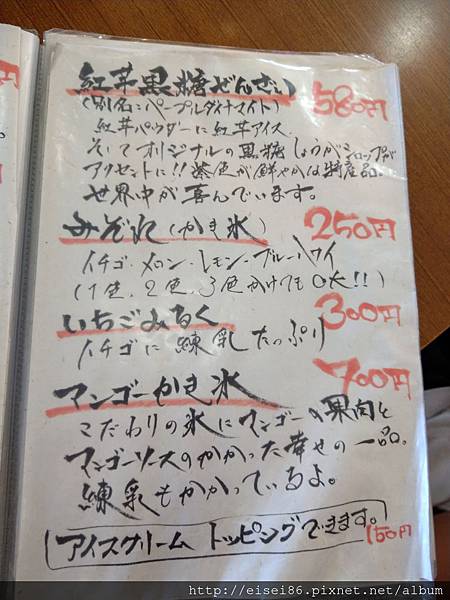 紅芋黒糖ぜんざい 580円
(別名:パープルダイナマイト)
紅芋パウダーに紅芋アイス
そしてオリジナルの黒糖しょうがシロップが
アクセントに!! 茶色が鮮やかな特産品。
世界中が喜んでいます。
みぞれ(かき氷) 250円
イチゴ・メロン・レモン・ブルーハワイ
(1色、2色、3色かけてもOK!!)
いちごみるく 300円
イチゴに練乳たっぷり
マンゴーかき氷 700円
こだわりの氷にマンゴーの果肉と
マンゴーソースのかかった幸せの一品。
練乳もかかっているよ。
アイスクリームトッピングできます。 150円
http://eisei86.pixnet.net/album